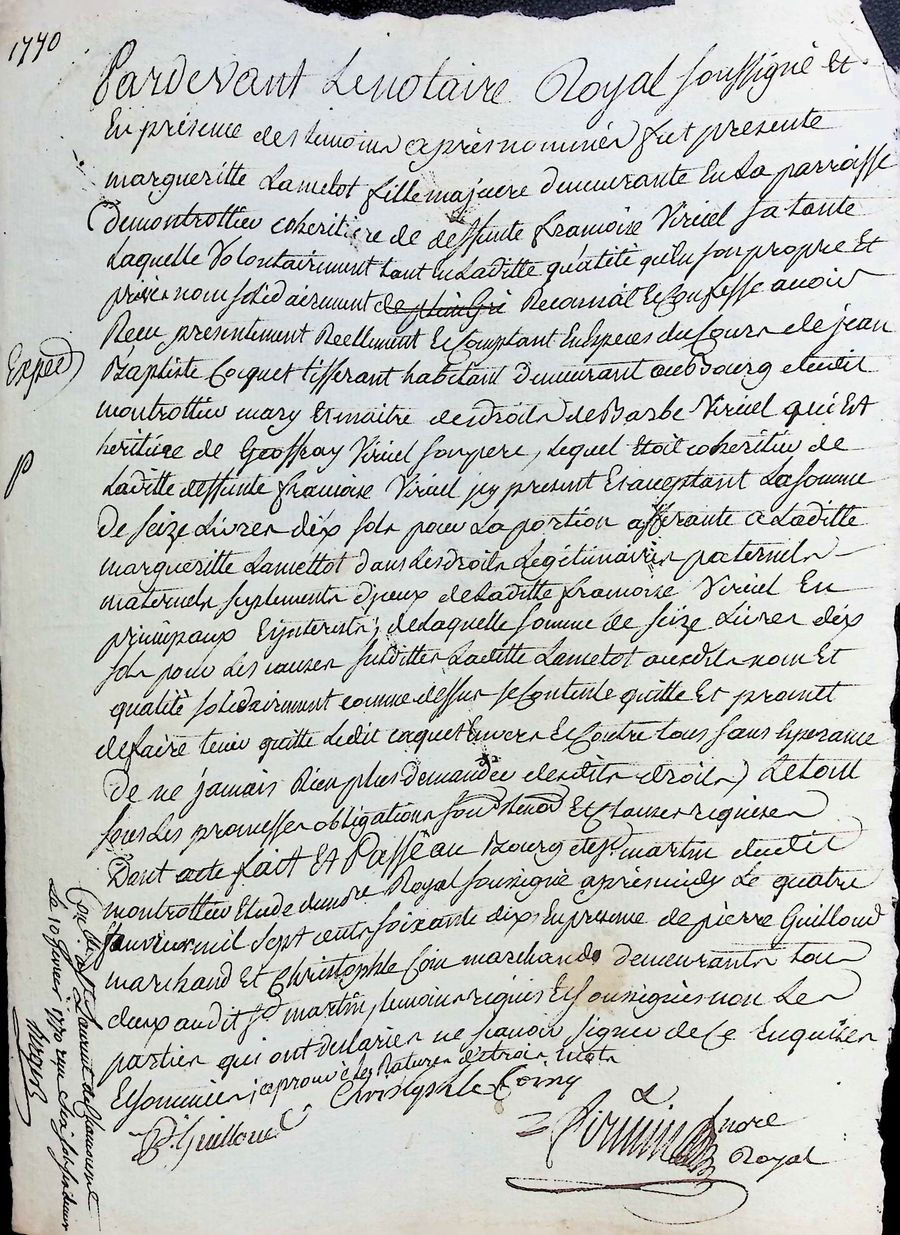 1770
Pardevant Le notaire Royal soussigné et
En présence des temoins après nommés fut presente
margueritte Lametot fille majeure demeurante En La parroisse
de montrottier coheritiere de deffunte francoise Viricel sa tante
Laquelle Volontairement tant en Laditte qualité qu'En son propre Et
privé nom solidairement de plein Gré Reconnait Et Confesse avoir
Recu presentement Reellement Et Comptant En Especes du Cours de jean
Baptiste Coquet tisserant habitant demeurant au Bourg dudit
montrottier mary Et maitre des droits de Barbe Viricel qui Est
heritiere de Geoffray Viricel son pere, Lequel Etoit coheritier de
Laditte deffunte francoise Viricel icy present Et acceptant La somme
De seize Livres dix sols pour La portion afferante a Laditte
margueritte Lamettot dans Les droits Legitimaires paternels
maternels suplements d'yceux de Laditte francoise Viricel En
principaux Et jnterists; de Laquelle somme de seize Livres dix
sols pour Les causes susdittes Laditte Lametot auxdits nom Et
qualité solidairement comme dessus se Contente quitte Et promet
de faire tenir quitte Ledit coquet Envers Et Contre tous sans Esperance
De ne jamais Rien plus demander desdits droits) Le tout
sous Les promesses obligations Et Clauses requises
Dont acte fait Et Passé au Bourg de St. martin dudit
montrottier Etude du nore Royal soussigné après midy Le quatre
janvier mil sept cents soixante dix En presence de pierre Guilloud
marchand Et Christophle Coin marchand demeurants tous
deux audit St martin, temoins requis Et soussignés non Les
parties qui ont declarées ne scavoir signer de Ce Enquises
Et sommées
Christophle Coing
P. Guilloud
nore
Royal
Exped
P
Con. à St Laurent de Chamousset
Le 10 janvier 1770 reçu